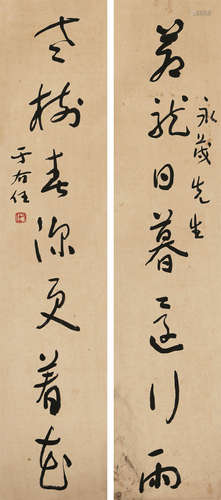 蒼龍日暮還行雨
永茂先生
老樹春深更著花
于右任